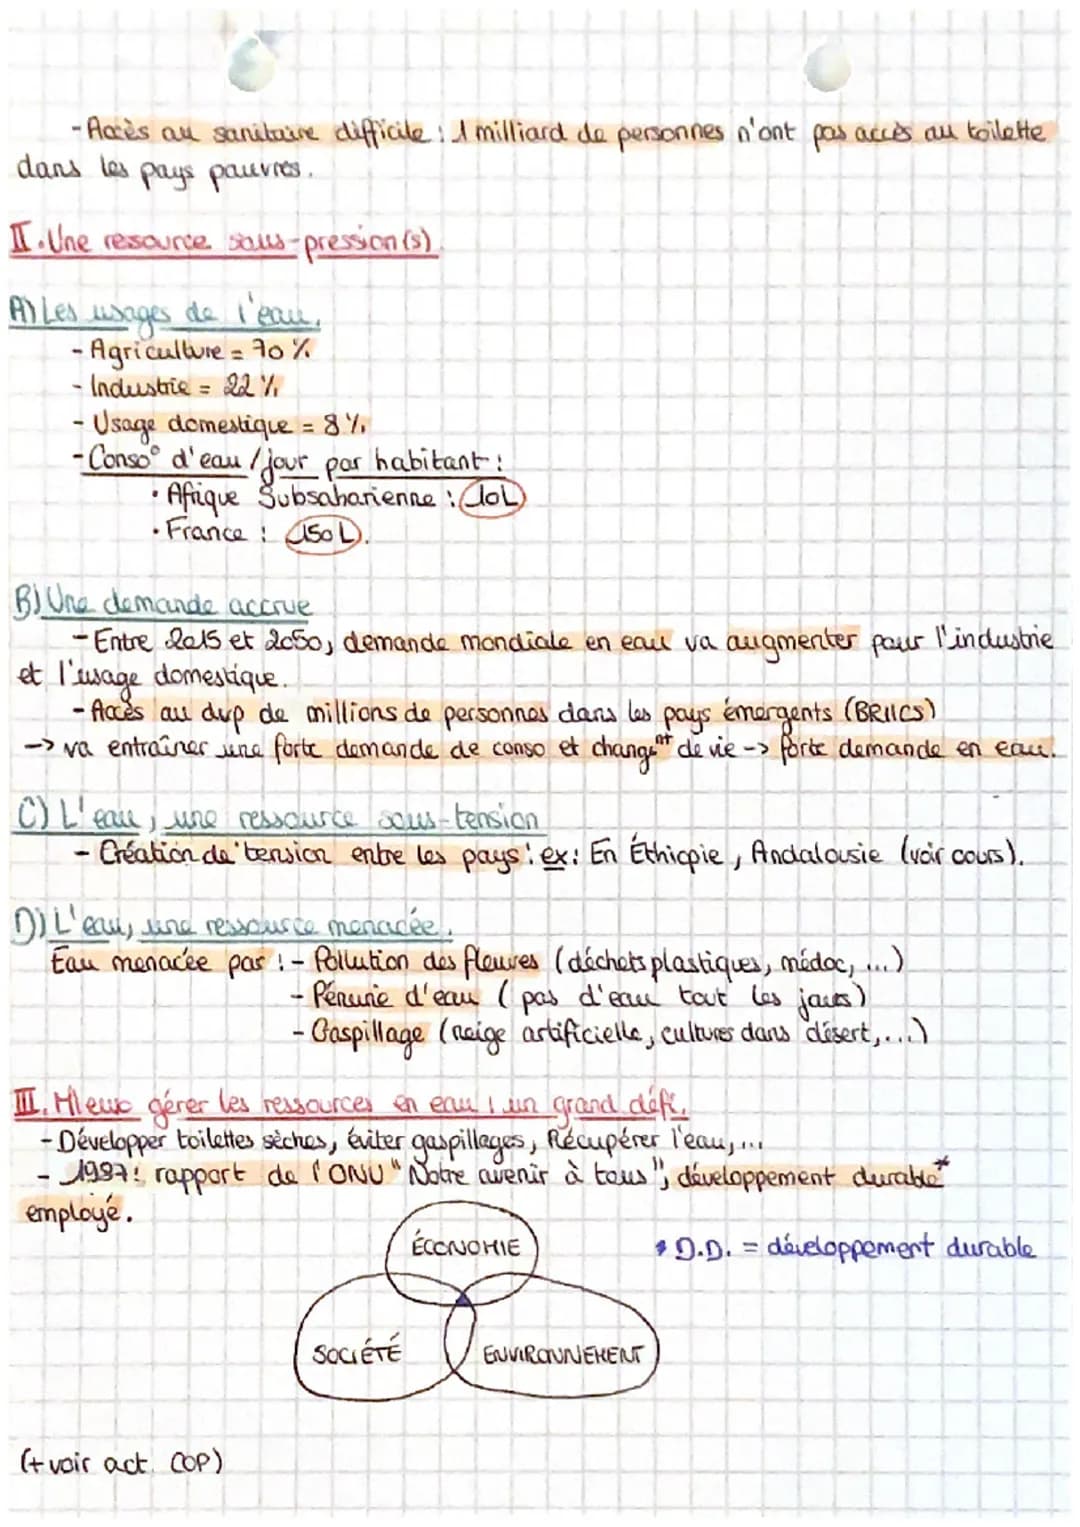 - Accès au sanitaire difficile : 1 milliard de personnes n'ont pas accès au toilette
dans les pays pauvres.
II. Une ressource sous-pression(s)
A) Les usages de l'eau.
- Agriculture = 70 %
- Industrie = 22 %
- Usage domestique = 8 %
- Conso° d'eau / jour par habitant :
• Afrique Subsaharienne : 10L
• France : 150 L.
B) Une demande accrue
- Entre 2015 et 2050, demande mondiale en eau va augmenter pour l'industrie
et l'usage domestique.
- Accès au dvp de millions de personnes dans les pays émergents (BRIICS)
-> va entraîner une forte demande de conso et changemt de vie -> forte demande en eau.
C) L'eau, une ressource sous-tension
- Création de tension entre les pays : ex : En Éthiopie, Andalousie (voir cours).
D) L'eau, une ressource menacée.
Eau menacée par : - Pollution des fleuves (déchets plastiques, médoc, ...)
- Pénurie d'eau (pas d'eau tout les jours)
- Gaspillage (neige artificielle, cultures dans désert, ...)
III. Mieux gérer les ressources en eau : un grand défi.
- Développer toilettes sèches, éviter gaspillages, Récupérer l'eau, ...
- 1987 : rapport de l'ONU "Notre avenir à tous", développement durable*
employé.
ÉCONOMIE
* D.D. = développement durable
SOCIÉTÉ ENVIRONNEMENT
(+ voir act. COP)